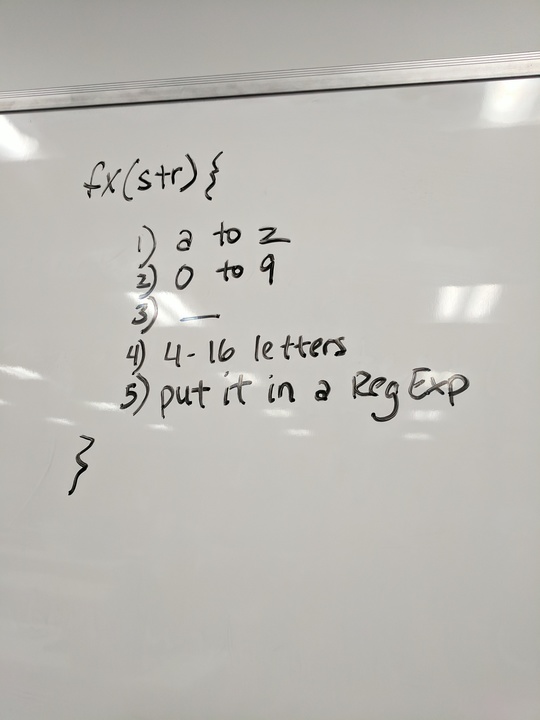 fx(str){
1) a to z
2) 0 to 9
3) _
4) 4-16 letters
5) put it in a RegExp
}